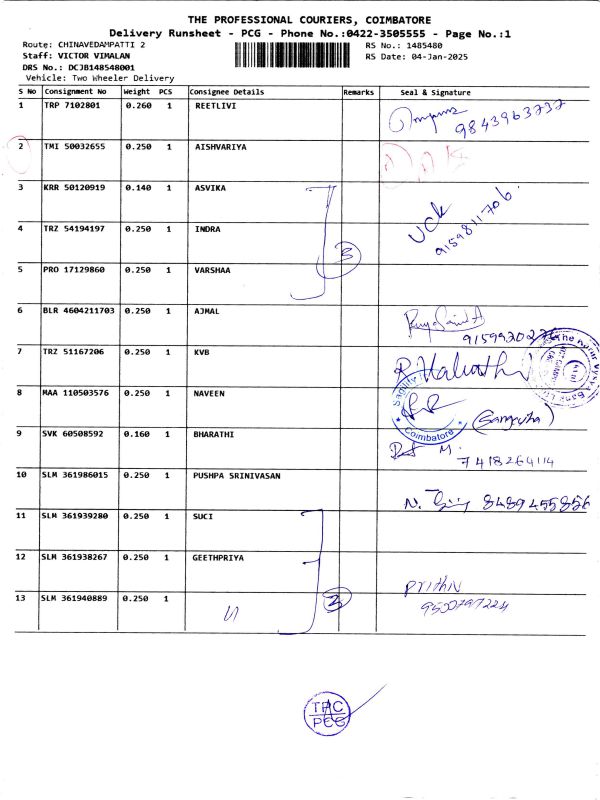 THE PROFESSIONAL COURIERS, COIMBATORE
Delivery Runsheet - PCG - Phone No.:0422-3505555 - Page No.:1
Route: CHINAVEDAMPATTI 2
RS No.: 1485480
Staff: VICTOR VIMALAN
RS Date: 04-Jan-2025
DRS No.: DCJB148548001
Vehicle: Two Wheeler Delivery
S No Consignment No Weight PCS Consignee Details Remarks Seal & Signature
1 TRP 7102801 0.260 1 REETLIVI
9843963737
2 TMI 50032655 0.250 1 AISHVARIYA
3 KRR 50120919 0.140 1 ASVIKA
UCK
9159811706
4 TRZ 54194197 0.250 1 INDRA
3
5 PRO 17129860 0.250 1 VARSHAA
6 BLR 4604211703 0.250 1 AJMAL
7 TRZ 51167206 0.250 1 KVB
8 MAA 110503576 0.250 1 NAVEEN
(Sangeetha)
Coimbatore
9 SVK 60508592 0.160 1 BHARATHI
7418264114
10 SLM 361986015 0.250 1 PUSHPA SRINIVASAN
8489455856
11 SLM 361939280 0.250 1 SUCI
12 SLM 361938267 0.250 1 GEETHPRIYA
Prithiv
13 SLM 361940889 0.250 1
3
TPC
PCG